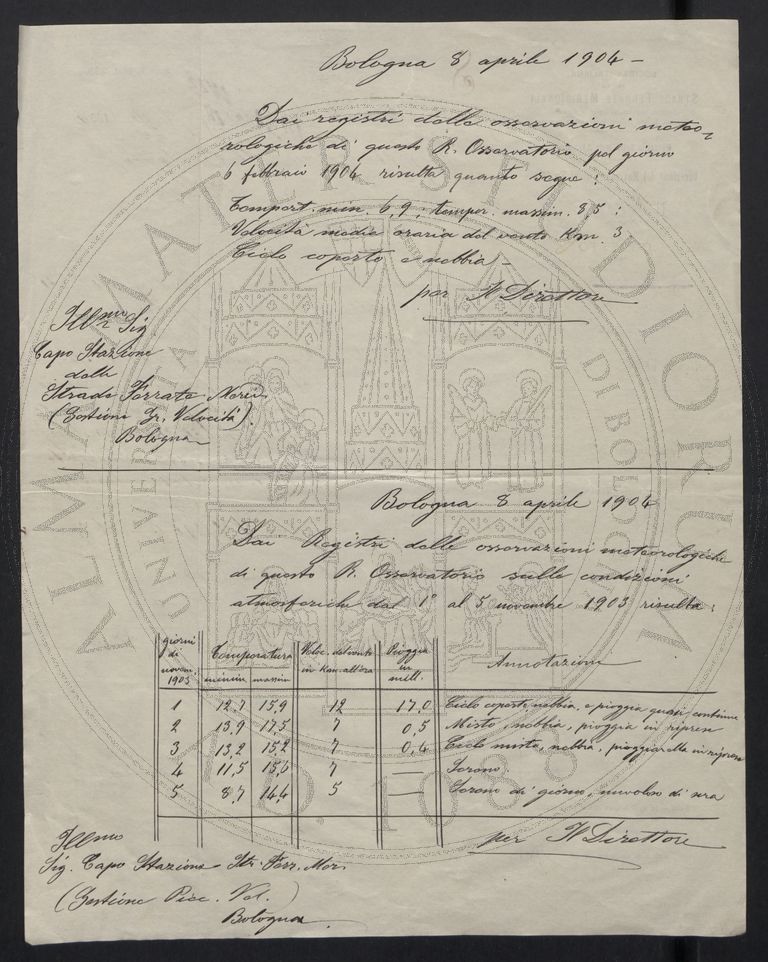 Bologna 8 aprile 1904 –
Dai registri delle osservazioni meteo-
rologiche di questo R. Osservatorio pel giorno
6 febbraio 1904 risulta quanto segue :
Temperat. min. 6,9 ; temper. massim. 8,5 ;
Velocità media oraria del vento Km. 3
Cielo coperto e nebbia –
per Il Direttore
Illmo Sigr
Capo Stazione
delle
Strade Ferrate Merid.
(Gestione Gr. Velocità).
Bologna
Bologna 8 aprile 1904
Dai Registri delle osservazioni meteorologiche
di questo R. Osservatorio sulle condizioni
atmosferiche dal 1° al 5 novembre 1903 risulta :
giorni di novem. 1903 Temperatura minim massim Veloc. del vento in Km. all'ora Pioggia in mill. Annotazioni
1 12,7 15,9 12 17,0 Cielo coperto, nebbia, e pioggia quasi continua
2 13,9 17,5 7 0,5 Misto, nebbia, pioggia in riprese
3 13,2 15,2 7 0,4 Cielo misto, nebbia, pioggiarella in riprese
4 11,5 15,6 7 — Sereno.
5 8,7 14,4 5 — Sereno di giorno, nuvoloso di sera
per Il Direttore
Illmo
Sig. Capo Stazione Str. Ferr. Mer.
(Gestione Picc. Vel.)
Bologna
ALMA MATER STUDIORUM
UNIVERSITÀ DI BOLOGNA
A.D. 1088